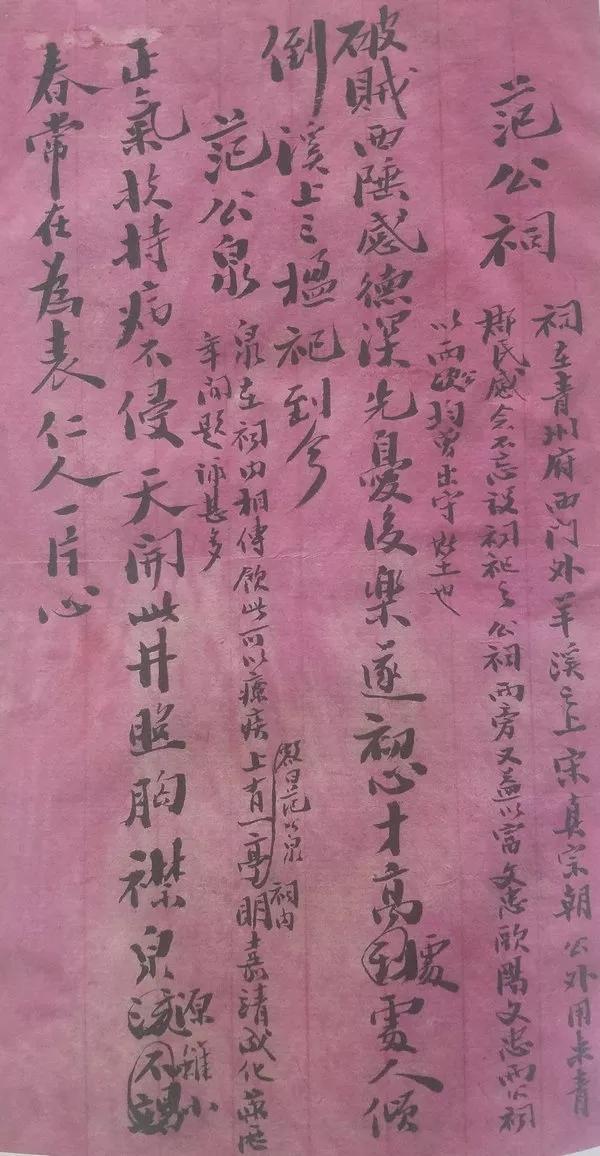 范公祠
祠在青州府西门外羊溪之上宋真宗朝公外用来青
郡民感公不忘设祠祀之公祠两旁又益以富文忠欧陽文忠两公祠
以两公均曾出守此土也
破賊西陲感德深先憂後樂遂初心才高到處人傾
倒溪上三楹祀到今
范公泉
泉在祠内相傳飲此可以療疾上有一亭明嘉靖成化萬歷
顏曰范公泉祠内
年间题詠甚多
正氣扶持病不侵天開此井照胸襟泉源雖小
春常在為表仁人一片心